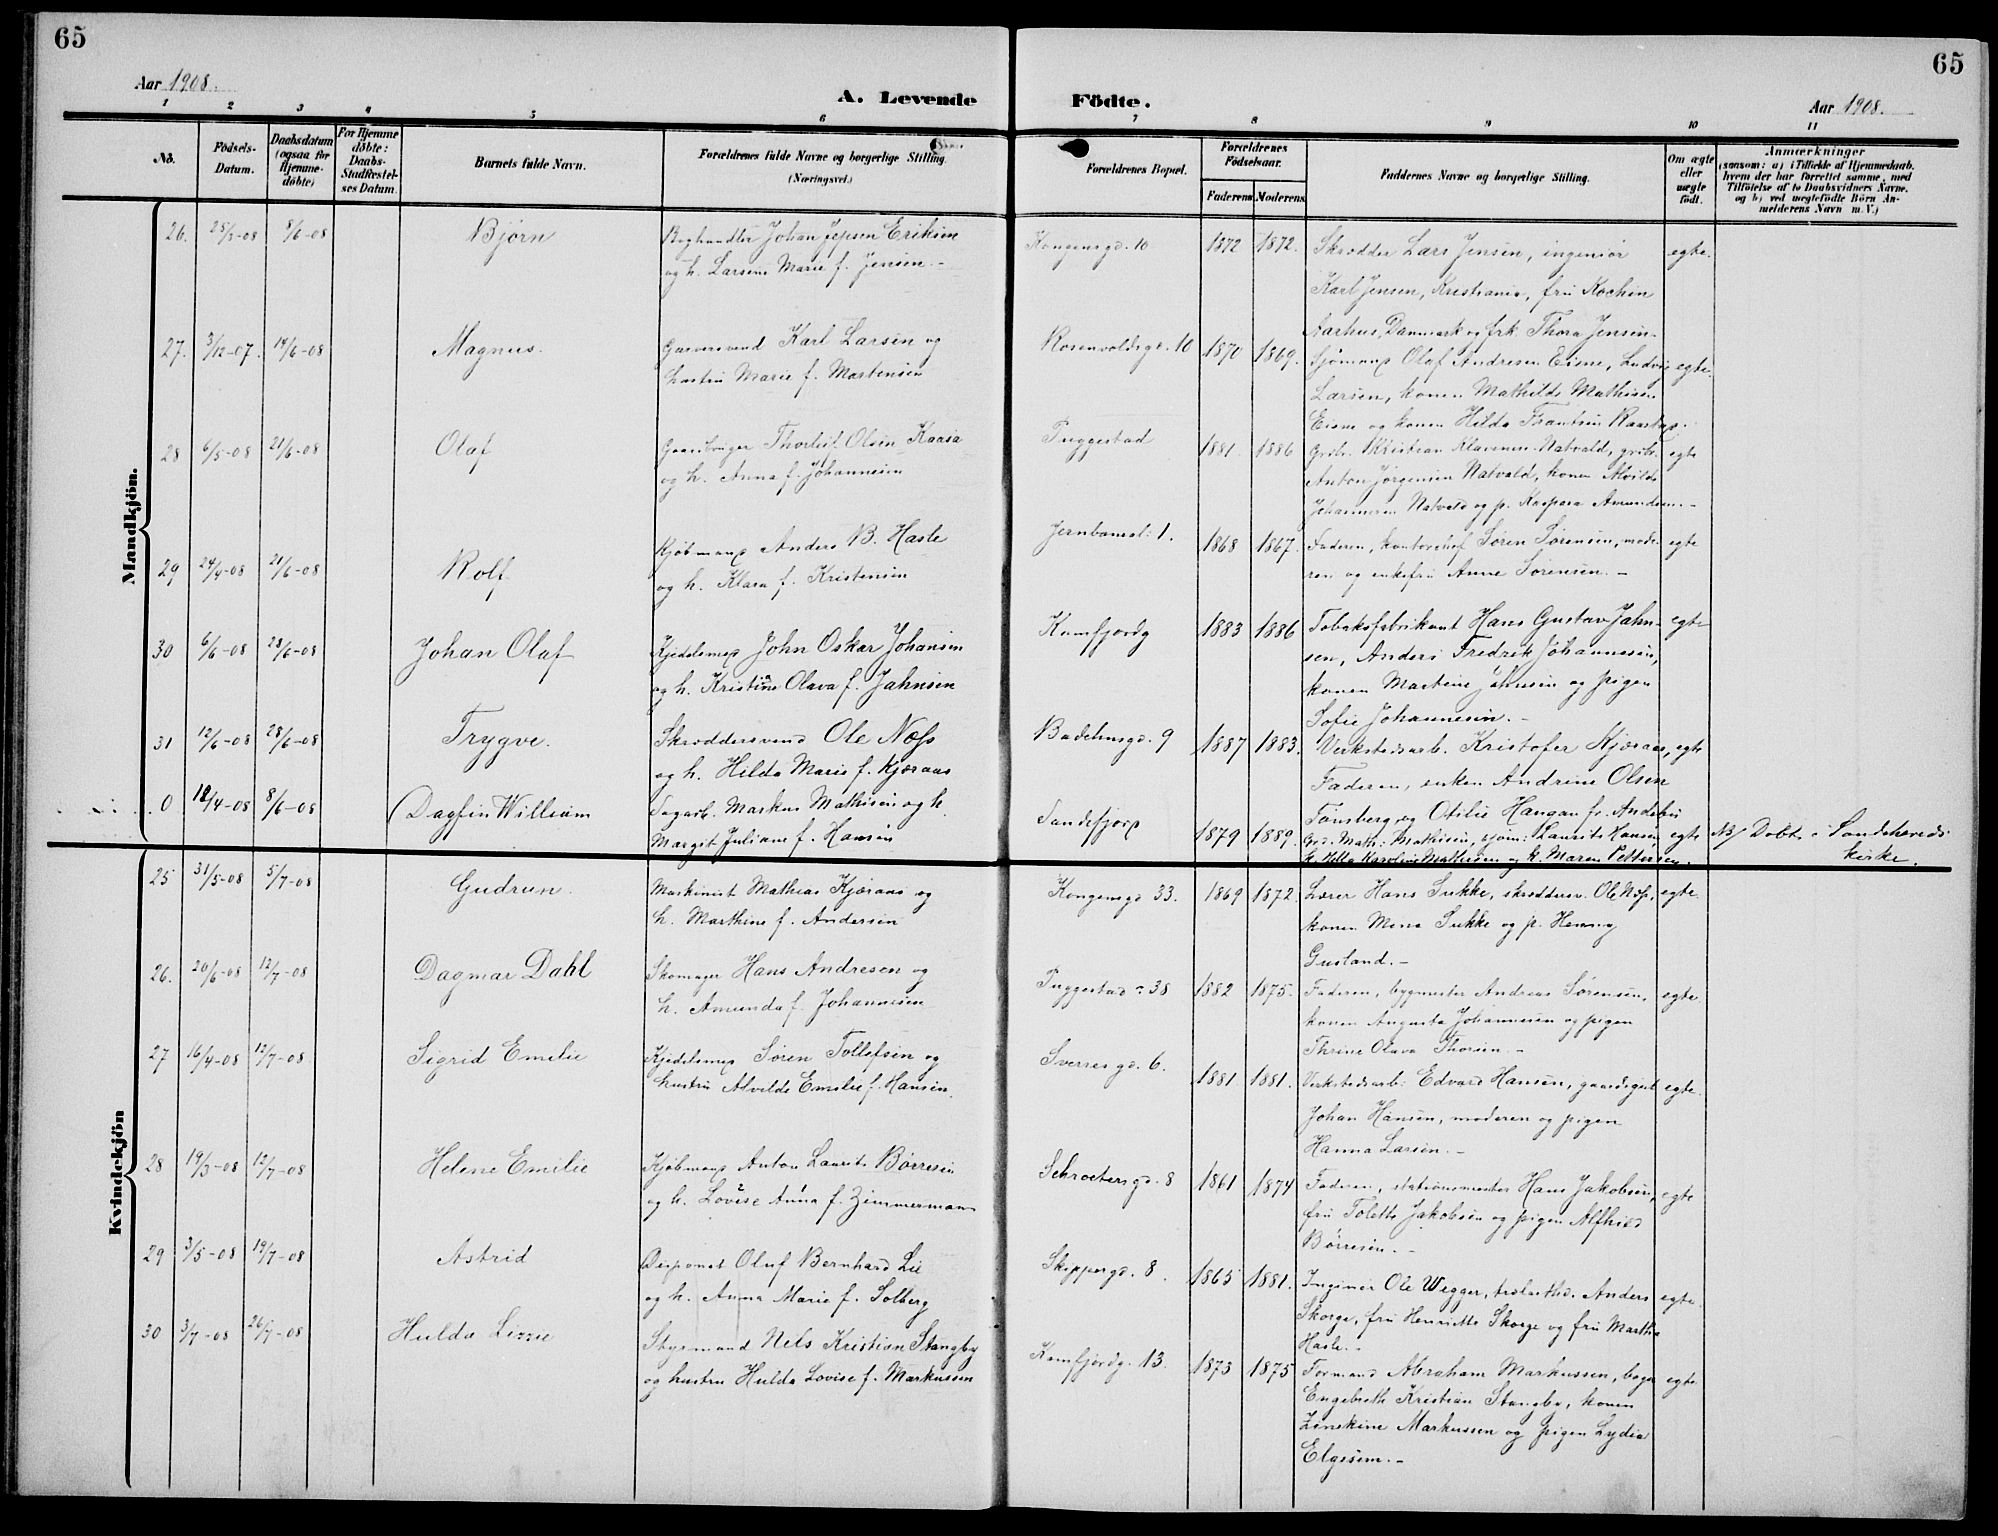 65
65
Aar 1908.
A. Levende
Födte.
Aar 1908.
1 2 3 4 5 6
7 8 9 10 11
No.
Födsels-
Datum.
Daabsdatum
(ogsaa for
Hjemme-
döbte)
For Hjemme
döbte:
Daabs-
Stadfæstel-
ses Datum.
Barnets fulde Navn.
Forældrenes fulde Navne og borgerlige Stilling.
(Næringsvei.)
Forældrenes Bopæl.
Forældrenes
Födselsaar.
Faderens
Moderens
Faddernes Navne og borgerlige Stilling.
Om ægte
eller
uægte
födt.
Anmærkninger
(saasom: a) i Tilfælde af Hjemmedaab,
hvem der har forrettet samme, med
Tilföielse af to Daabsvidners Navne.
og b) ved uægtefödte Börn An-
melderens Navn m. V.)
Mandkjön.
26. 25/3-08 8/6-08 Bjørn
Boghandler Johan Jepsen Eriksen
og h. Larsine Marie f. Jensen.-
Kongensgd. 10 1872 1872.
Skrædder Lars Jensen, ingeniør
Karl Jensen, Kristiania, fru Kochen
Aarhus, Danmark og frk Thora Jensen.
egte.
27. 3/12-07. 14/6-08 Magnus.
Garversvend Karl Larsen og
hustru Marie f. Martensen
Rosenvoldsgd. 10 1870 1869.
Sjømand Olaf Andresen Eisne, Ludvig
Larsen, konen Mathilde Mathisen
Eisne og konen Hilda Frantsen Raastap.
egte.
28 6/5-08 21/6-08 Olaf
Gaardbruger Thorleif Olsen Kaasa
og h. Anna f. Johannesen
Tuggestad 1881. 1886
Grdbr. Kristian Klavenes Natvald, grdbr.
Anton Jørgensen Natvald, konen Alvilde
Johannesen Natvald og p. Kaspara Amundsen.-
egte
29 24/4-08 21/6-08 Rolf
Kjøbmand Anders B. Hasle
og h. Klara f. Kristensen
Jernbaneal. 1. 1868 1867.
Faderen, kontorchef Søren Sørensen, mode-
ren og enkefru Anne Sørensen.-
egte
30 6/6-08 28/6-08 Johan Olaf
Kjedelsmed John Oskar Johansen
og h. Kristine Olava f. Jahnsen
Kamfjordg 1883 1886
Tobaksfabrikant Hans Gustav Jahn-
sen, Anders Fredrik Johannessen,
konen Martine Jahnsen og pigen
Sofie Johannesen.-
egte
31 12/6-08 28/6-08 Trygve.
Skræddersvend Ole Næss
og h. Hilda Marie f. Kjæraas
Badehusgd. 9 1887 1883.
Verkstedsarb. Kristofer Kjæraas,
Faderen, enken Andrine Olsen
Tønsberg og Otilie Haugan fr. Andebu
egte
0 12/4-08 8/6-08 Dagfin William
Dagarb. Markus Mathisen og h.
Margit Juliane f. Hansen
Sandefjord 1879 1889.
Grd. Math: Mathisen, sjøm: Laurits Hansen
k. Hilla Karoline Mathisen og k. Maren Pettersen.
egte
NB/ Døbt i Sandeherreds
kirke.
Kvindekjön
25 31/5-08 5/7-08 Gudrun.
Maskinist Mathias Kjæraas og
h. Marthine f. Andersen
Kongensgd 33. 1869 1872.
Lærer Hans Sukke, skræddersv. Ole Næss,
konen Mina Sukke og p. Henny
Gusland.-
egte.
26. 20/6-08 12/7-08 Dagmar Dahl
Skomager Hans Andresen og
h. Amunda f. Johannesen
Tuggestad 38 1882 1875.
Faderen, bygmester Andreas Sørensen,
konen Augusta Johannesen og pigen
Thrine Olava Thorsen.-
egte
27 16/4-08 12/7-08 Sigrid Emilie
Kjedelsmed Søren Tollefsen og
hustru Alvilde Emilie f. Hansen.
Sverresgd. 6. 1881 1881.
Verkstedsarb: Edvard Hansen, gaardsgut
Johan Hansen, moderen og pigen
Hanna Larsen.-
egte.
28 19/3-08 12/7-08 Helene Emilie
Kjøbmand Anton Laurits Børresen
og h. Lovise Anna f. Zimmermann
Schroetersgd. 8 1861 1874
Faderen, stationsmester Hans Jakobsen,
fru Tolette Jakobsen og pigen Alfhild
Børresen.-
egte
29 3/5-08 19/7-08 Astrid
Disponent Oluf Bernhard Lie
og h. Anna Marie f. Solberg
Skippergd. 8. 1865 1881.
Ingeniør Ole Wegger, Anders
Skorge, fru Henriette Skorge og fru Martha
Hasle.-
egte.
30 3/7-08 26/7-08 Hulda Lizzie
Styrmand Nels Kristian Stangeby
og hustru Hulda Lovise f. Markussen
Kamfjordg. 13. 1873 1875
Formand Abraham Markussen, bager
Engebreth Kristian Stangeby, konen
Zinekine Markussen og pigen Lydia
Elgesem.-
egte